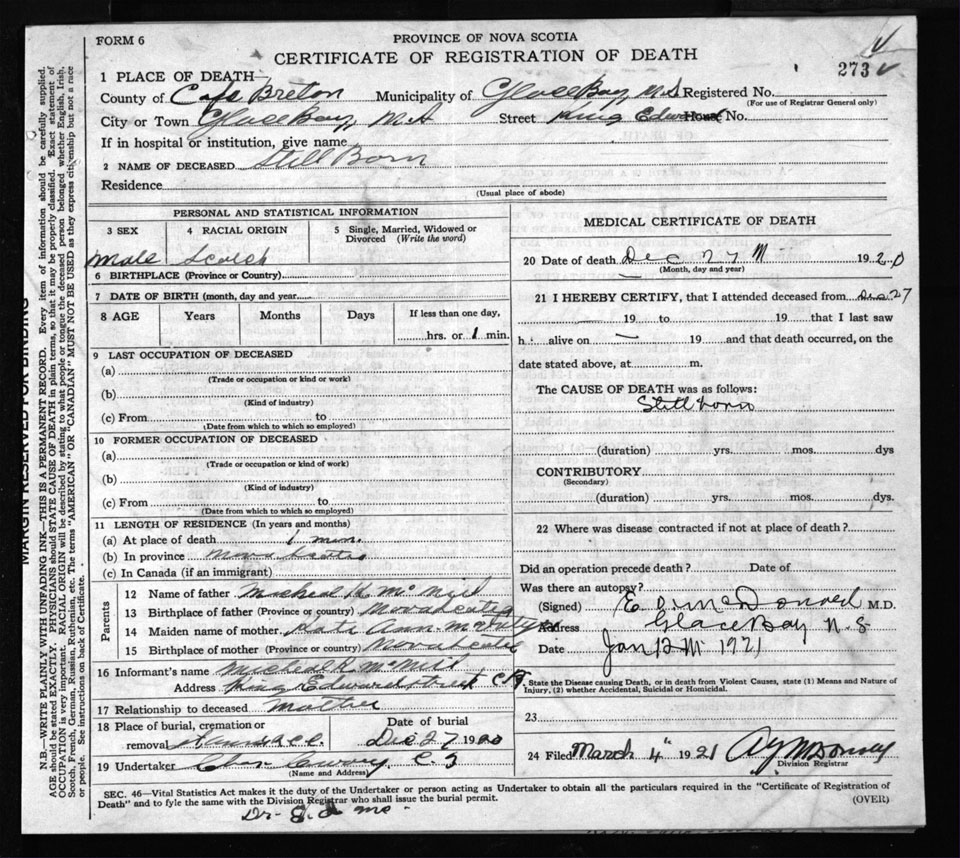 FORM 6
PROVINCE OF NOVA SCOTIA
CERTIFICATE OF REGISTRATION OF DEATH
273
1 PLACE OF DEATH
County of Cape Breton Municipality of Glace Bay, N.S Registered No.
(For use of Registrar General only)
City or Town Glace Bay, N.S Street King Edward House No.
If in hospital or institution, give name
2 NAME OF DECEASED Still Born
Residence
(Usual place of abode)
PERSONAL AND STATISTICAL INFORMATION
3 SEX 4 RACIAL ORIGIN 5 Single, Married, Widowed or Divorced (Write the word)
Male Scotch
6 BIRTHPLACE (Province or Country)
7 DATE OF BIRTH (month, day and year
8 AGE Years Months Days If less than one day,
hrs. or 1 min.
9 LAST OCCUPATION OF DECEASED
(a)
(Trade or occupation or kind or work)
(b)
(Kind of industry)
(c) From to
(Date from which to which so employed)
10 FORMER OCCUPATION OF DECEASED
(a)
(Trade or occupation or kind of work)
(b)
(Kind of industry)
(c) From to
(Date from which to which so employed)
11 LENGTH OF RESIDENCE (In years and months)
(a) At place of death 1 min.
(b) In province Nova Scotia
(c) In Canada (if an immigrant)
Parents
12 Name of father Micheal H. McNeil
13 Birthplace of father (Province or country) Nova Scotia
14 Maiden name of mother. Kate Ann McIntyre
15 Birthplace of mother (Province or country) Nova Scotia
16 Informant's name Micheal H McNeil
Address King Edward Street
17 Relationship to deceased
18 Place of burial, cremation or removal
Date of burial
Dec 27 1920
19 Undertaker
(Name and Address)
MEDICAL CERTIFICATE OF DEATH
20 Date of death Dec 27 1920
(Month, day and year)
21 I HEREBY CERTIFY, that I attended deceased from Dec 27
19 to 19 that I last saw
h alive on 19 and that death occurred, on the
date stated above, at m.
The CAUSE OF DEATH was as follows:
Stillborn
(duration) yrs. mos. dys
CONTRIBUTORY
(Secondary)
(duration) yrs. mos. dys.
22 Where was disease contracted if not at place of death?
Did an operation precede death? Date of
Was there an autopsy?
(Signed) McDonald M.D.
Address Glace Bay N.S
Date Jan 1921
State the Disease causing Death, or in death from Violent Causes, state (1) Means and Nature of
Injury, (2) whether Accidental, Suicidal or Homicidal.
23
24 Filed March 4th 1921
Division Registrar
SEC. 46—Vital Statistics Act makes it the duty of the Undertaker or person acting as Undertaker to obtain all the particulars required in the "Certificate of Registration of
Death" and to fyle the same with the Division Registrar who shall issue the burial permit.
(OVER)
MARGIN RESERVED FOR BINDING
N.B.—WRITE PLAINLY WITH UNFADING INK—THIS IS A PERMANENT RECORD. Every item of information should be carefully supplied.
AGE should be stated EXACTLY. PHYSICIANS should STATE CAUSE OF DEATH in plain terms, so that it may be properly classified. Exact statement of
OCCUPATION is very important. RACIAL ORIGIN will be described by stating to what people or tongue the deceased person belonged whether English, Irish,
Scotch, French, German, Russian, Ruthenian, etc. The terms "AMERICAN" OR "CANADIAN" MUST NOT BE USED as they express citizenship but not a race
or people. See instructions on back of Certificate.